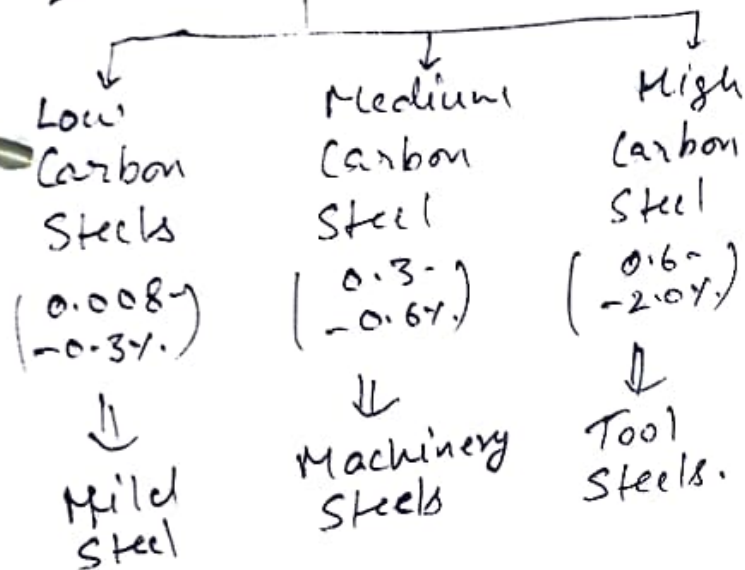 Low
Carbon
Steels
(0.008-
-0.3%.)
Mild
Steel
Medium
Carbon
Steel
(0.3-
-0.6%.)
Machinery
Steels
High
Carbon
Steel
(0.6-
-2.0%.)
Tool
Steels.